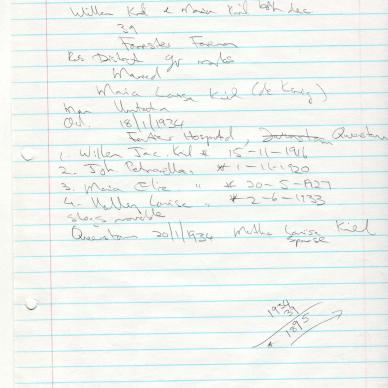 Willem Kiel & Maria Kiel both dec
39
Forrester Farmer
Res District
Married
Maria Louisa Kiel (de
Umtata
Oct. 18/1/1934
Frontier Hospital, Queenstown
1. Willem Jac. Kiel * 15-11-1916
2. Joh Petronella " * 1-11-1920
3. Maria Eliz " * 20-5-1927
4. Louisa " * 2-6-1933
movable
Queenstown 20/1/1934 Louisa Kiel
spouse
1934
39
1895